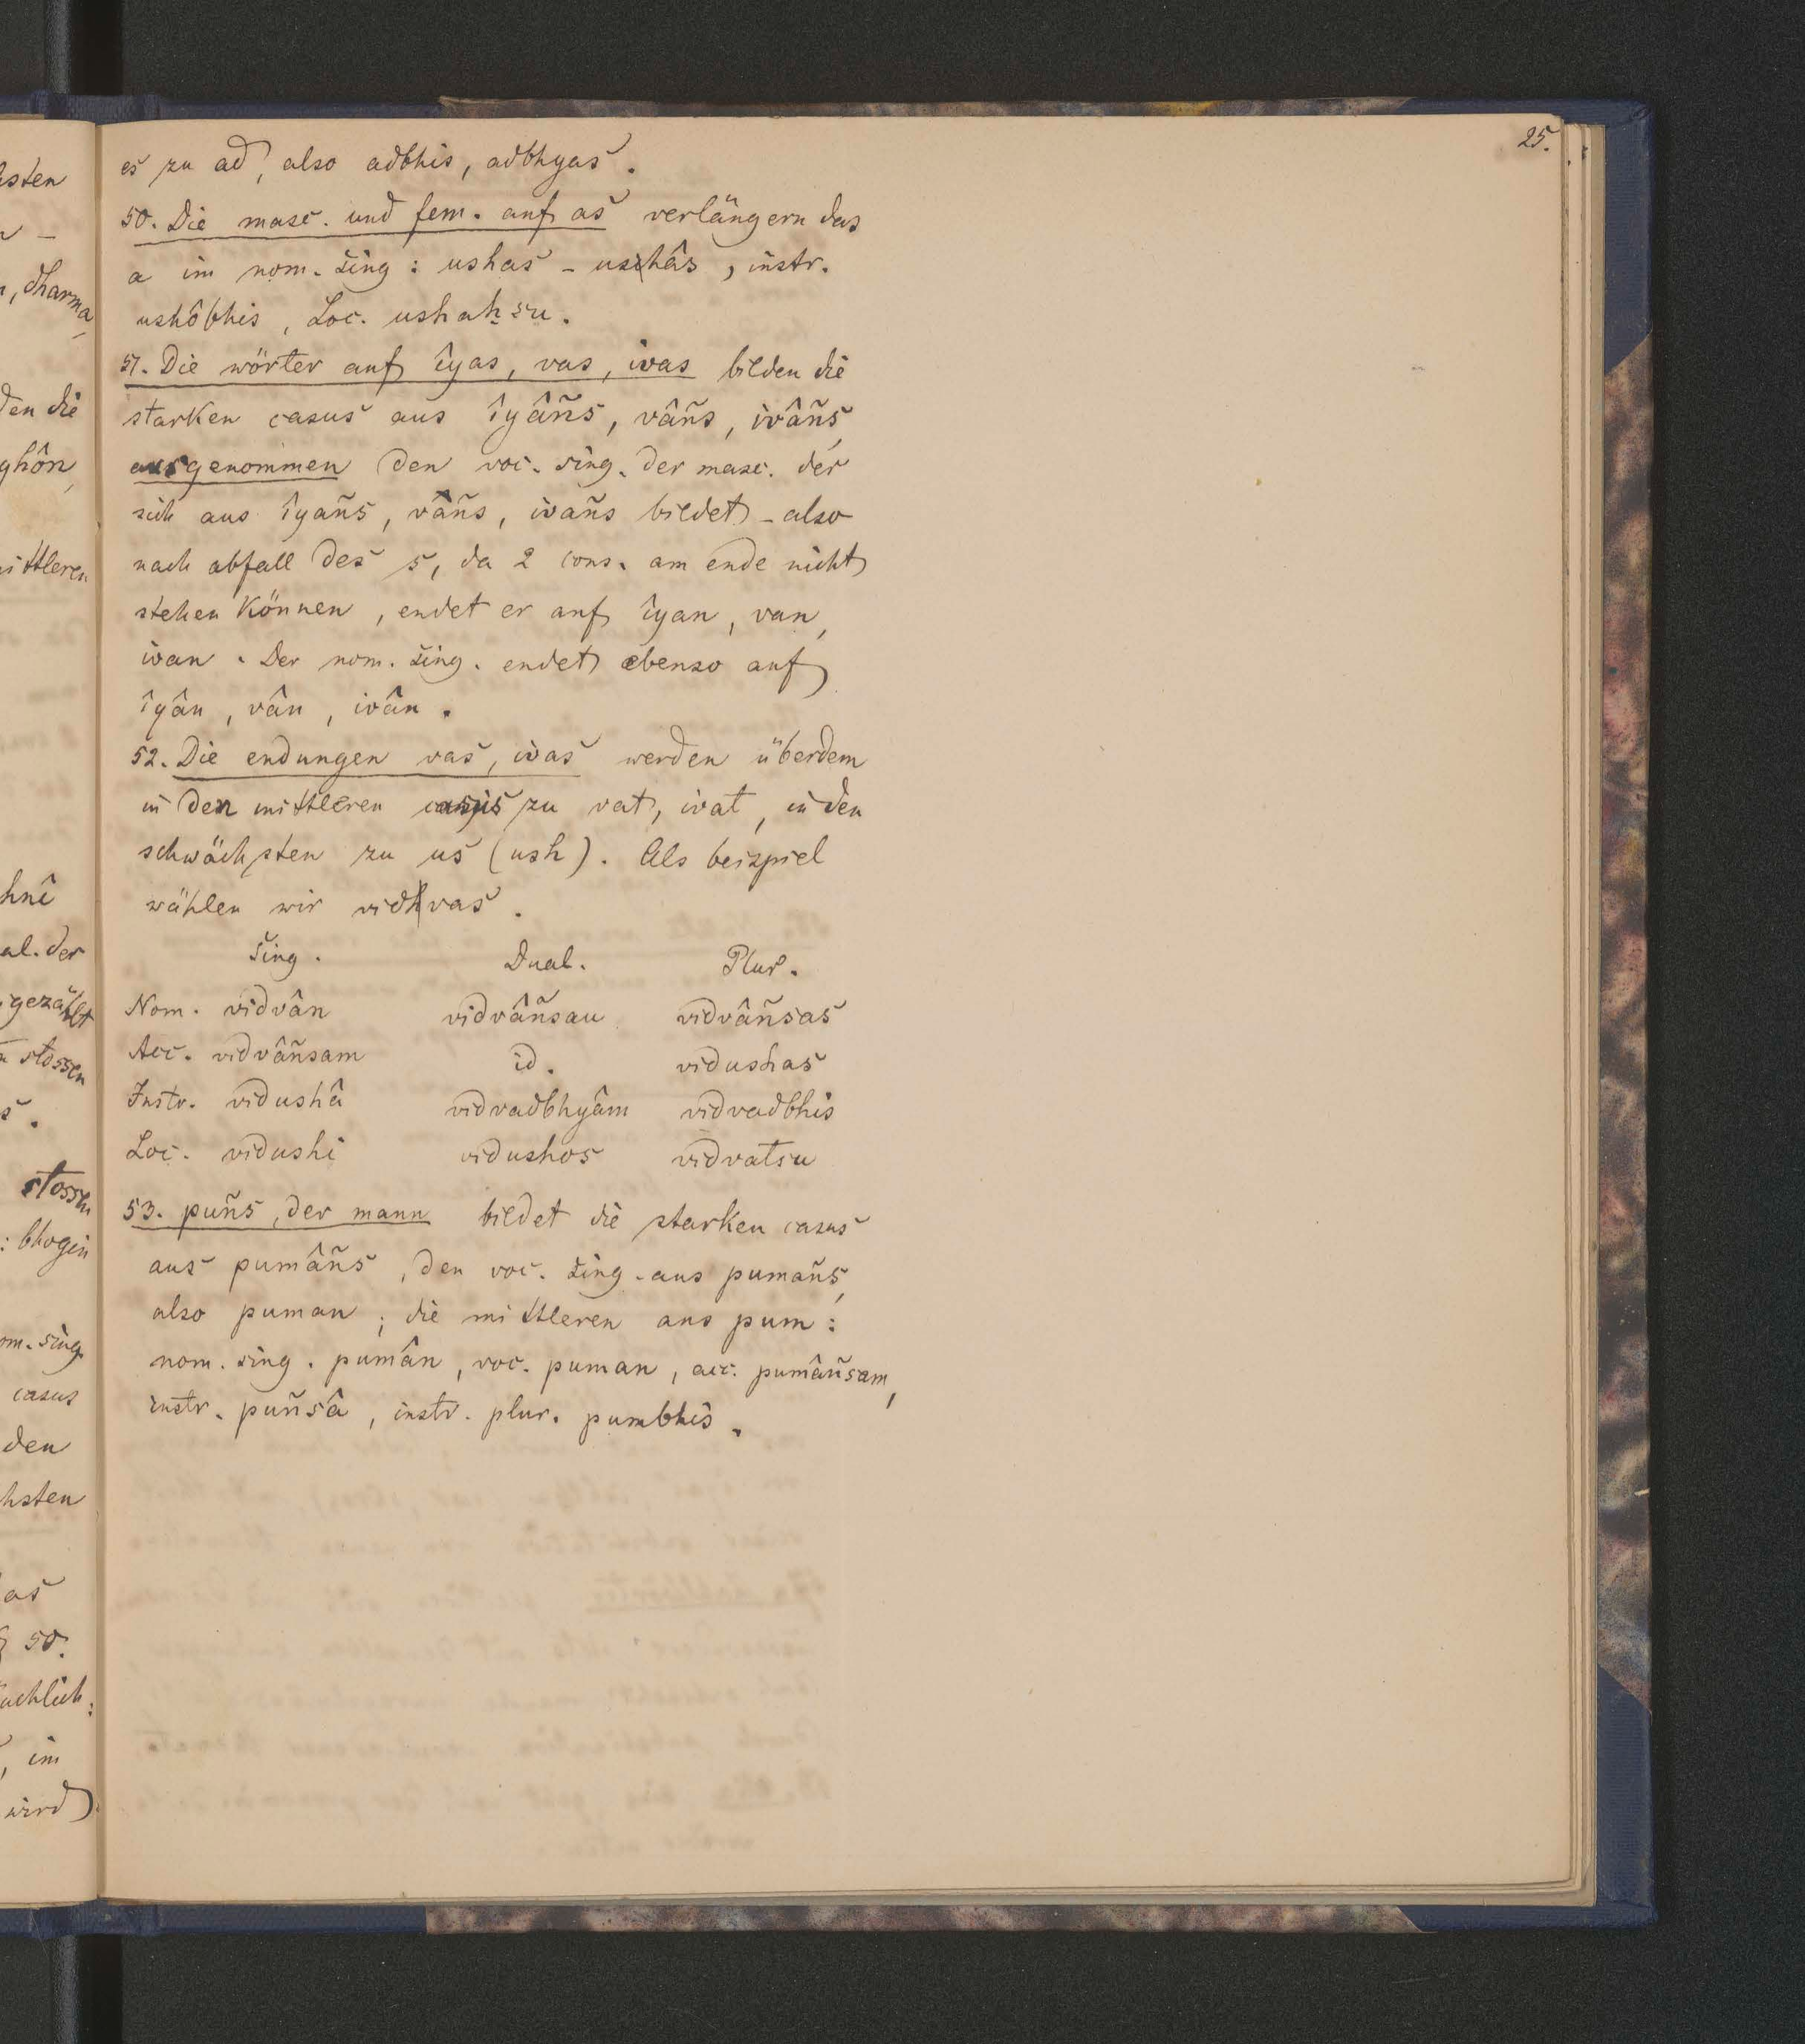 25.
es zu ad, also adbhis, adbhyas.
50. Die masc. und fem. auf as verlängern das
a im nom. sing : ushas - ushâs, instr.
ushôbhis, Loc. ushaḥsu.
51. Die wörter auf îyas, vas, ivas bilden die
starken casus aus îyâñs, vâñs, ivâñs,
ausgenommen den voc. sing. der masc. der
sich aus îyañs, vañs, ivañs bildet - also
nach abfall des s, da 2 cons. am ende nicht
stehen können, endet er auf îyan, van,
ivan. Der nom. sing. endet ebenso auf
îyân, vân, ivân.
52. Die endungen vas, ivas werden überdem
in den mittleren casus zu vat, ivat, in den
schwächsten zu us (ush). Als beispiel
wählen wir vidvas.
Sing. Dual. Plur.
Nom. vidvân vidvâñsau vidvâñsas
Acc. vidvâñsam id. vidushas
Instr. vidushâ vidvadbhyâm vidvadbhis
Loc. vidushi vidushos vidvatsu
53. puñs, der mann bildet die starken casus
aus pumâñs, den voc. sing. aus pumañs,
also puman ; die mittleren aus pum :
nom. sing. pumân, voc. puman, acc. pumâñsam,
instr. puñsâ, instr. plur. pumbhis.